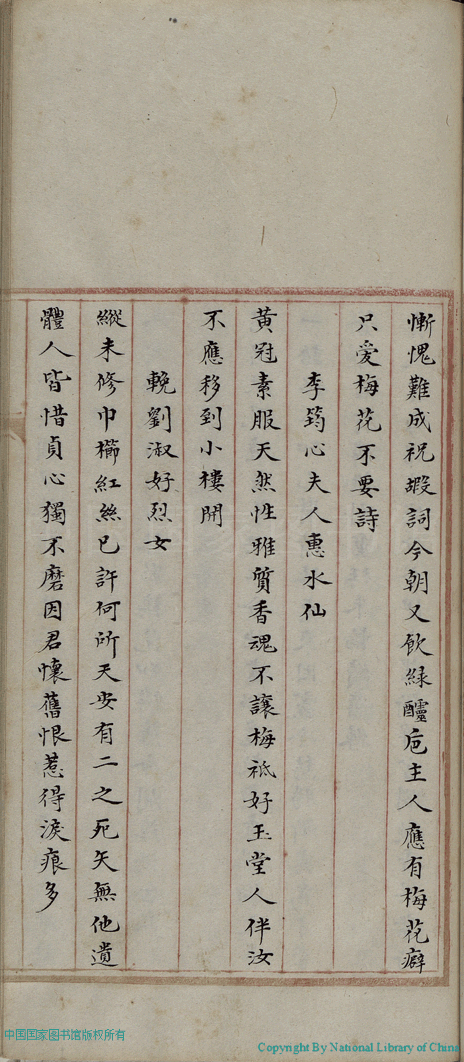 慚愧難成祝嘏詞今朝又飲緑醽卮主人應有梅花癖
只愛梅花不要詩
李筠心夫人惠水仙
黃冠素服天然性雅質香魂不讓梅祗好玉堂人伴汝
不應移到小樓開
輓劉淑好烈女
縱未修巾櫛紅絲已許何所天安有二之死矢無他遺
體人皆惜貞心獨不磨因君懷舊恨惹得淚痕多
中国国家图书馆版权所有
Copyright By National Library of China